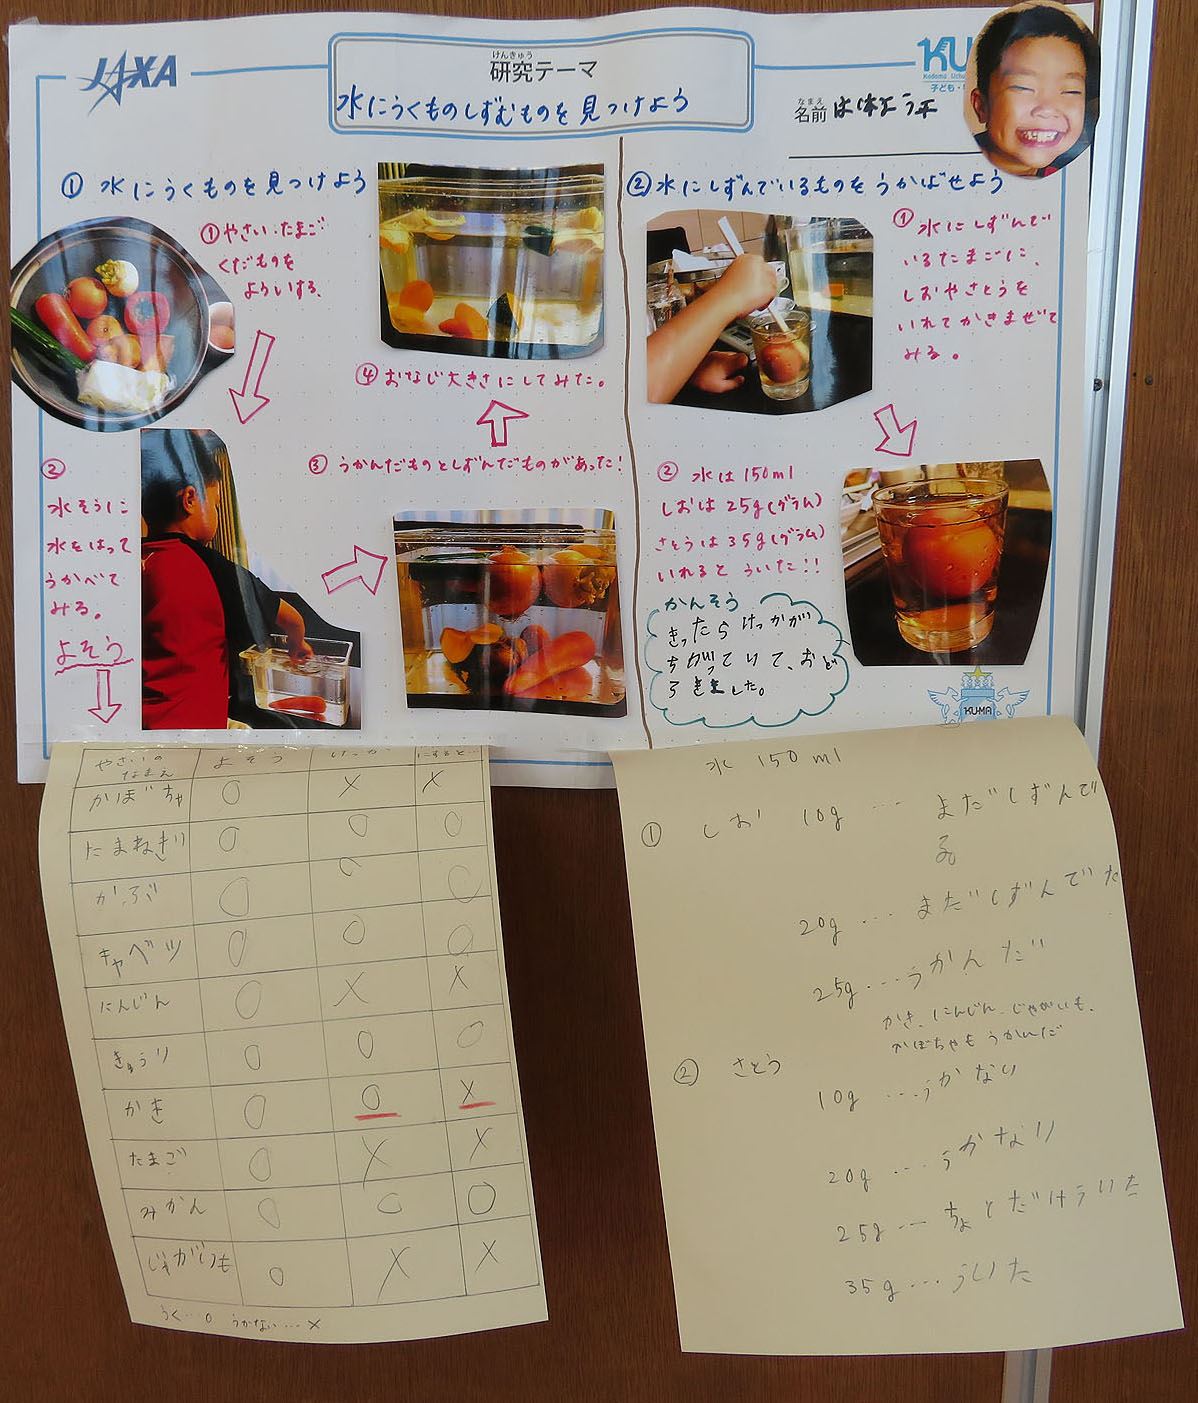 JAXA
けんきゅう
研究テーマ
水にうくものしずむものを見つけよう
KU
子ども・
なまえ
名前
① 水にうくものを見つけよう
①やさい・たまご
くだものを
よういする。
②
水そうに
水をはって
うかべて
みる。
よそう
③ うかんだものとしずんだものがあった!
④おなじ大きさにしてみた。
②水にしずんでいるものをうかばせよう
① 水にしずんで
いるたまごに、
しおやさとうを
いれてかきまぜて
みる。
② 水は150ml
しおは25g(グラム)
さとうは35g(グラム)
いれるとういた!!
かんそう
きったらけっかが
ちがっていて、おど
ろきました。
KU-MA
やさいのなまえ よそう けっか にすると…
かぼちゃ ○ × ×
たまねぎ ○ ○ ○
かぶ ○ ○ ○
キャベツ ○ ○ ○
にんじん ○ × ×
きゅうり ○ ○ ○
かき ○ ○ ×
たまご ○ × ×
みかん ○ ○ ○
じゃがいも ○ × ×
うく…○ うかない…×
水 150ml
① しお 10g … まだしずんで
る
20g … まだしずんでた
25g … うかんだ
かき、にんじん、じゃがいも、
かぼちゃもうかんだ
② さとう
10g … うかない
20g … うかない
25g … ちょとだけういた
35g … ういた